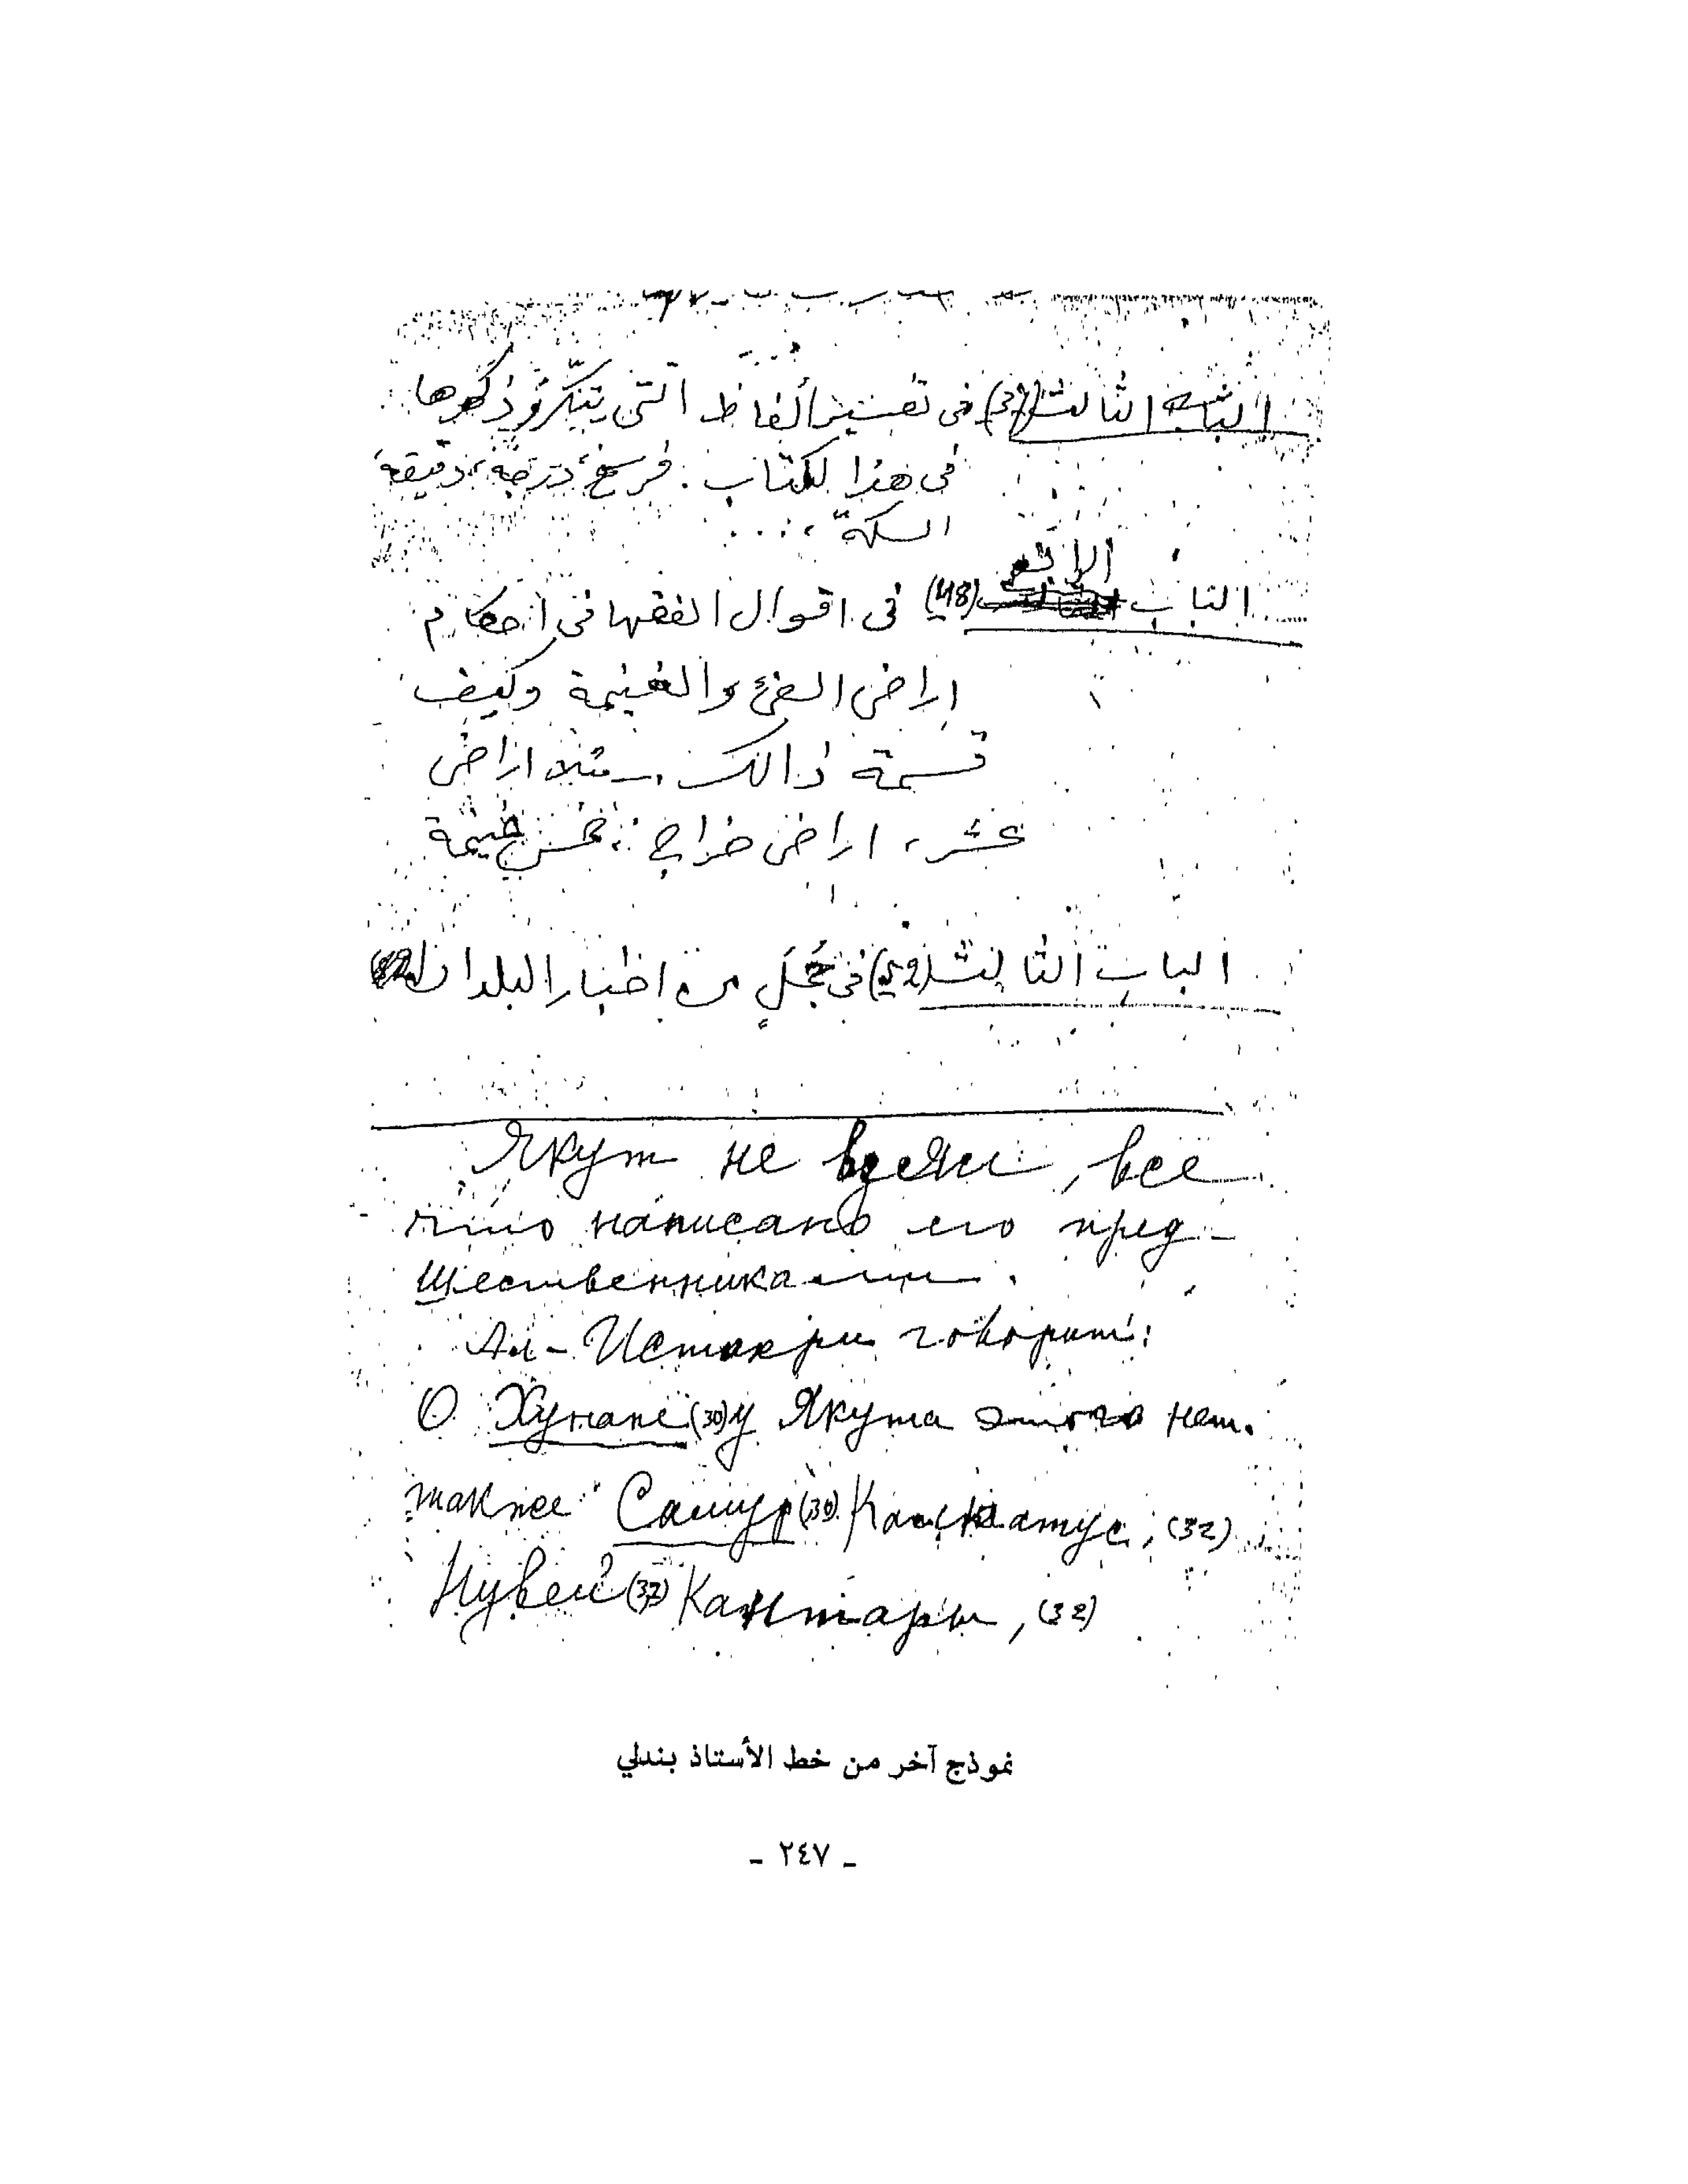 الباب الثالث في تفسير ألفاظ التي يتكرّر ذكرها
في هذا لكتاب: فرسخ، درجة، دقيقة
السكة، ....
الباب الرابع (48) في اقوال الفقها في احكام
اراضي الفئ والغنيمة وكيف
قسمة ذالك. مثلا اراضي
عشر، اراضي خراج، خمس
الباب الثالث في جُمَلٍ من اخبار البلدان
Якут не все
что написано его пред-
шественниками.
Ал-Истахри говорит:
О Хунане (30) у Якута этого нет.
также Самур (30) (32)
(37) Кантары, (32)
نموذج آخر من خط الأستاذ بندلي
- ٢٤٧ -